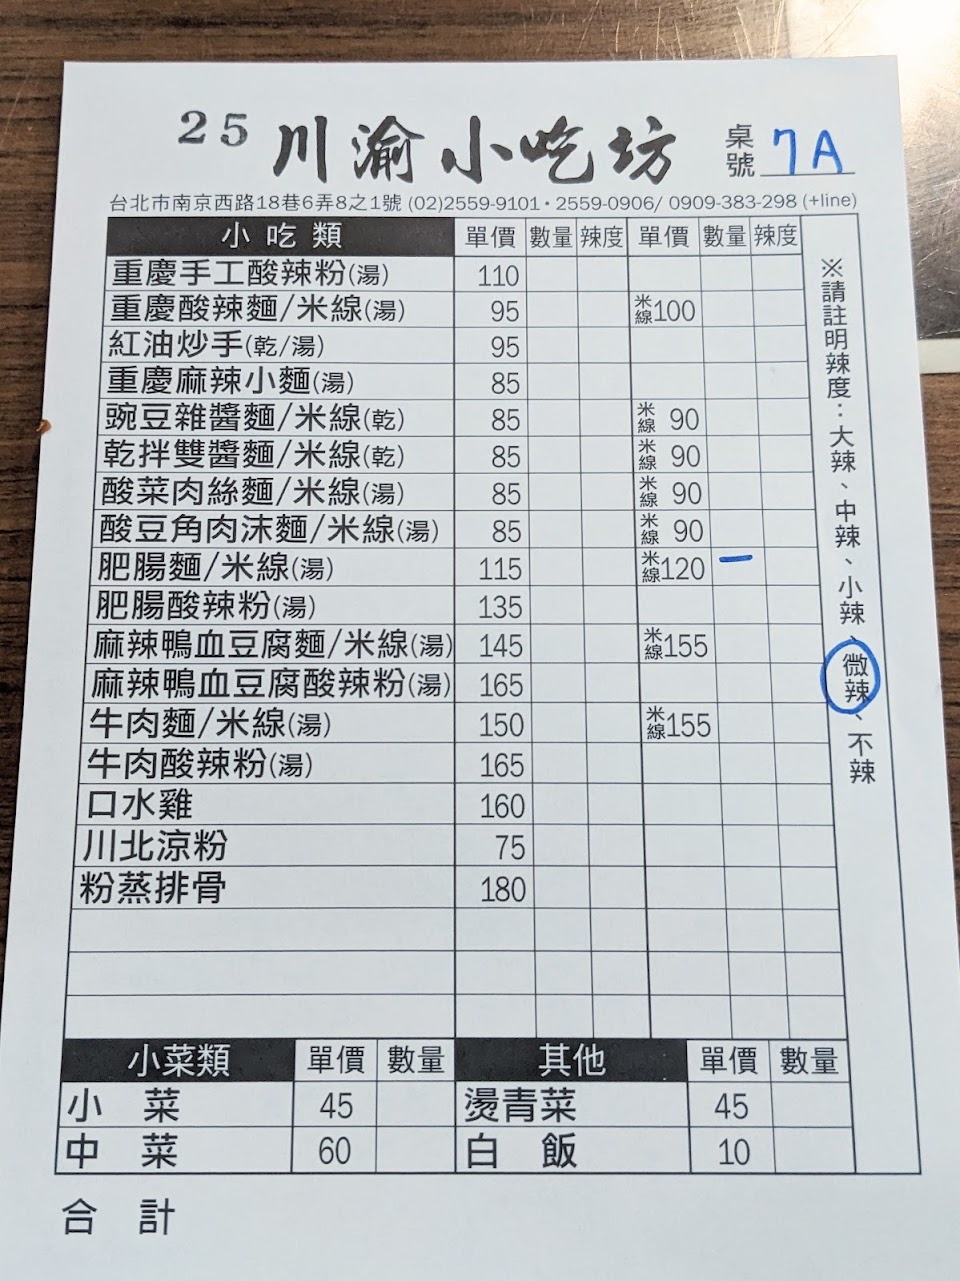 25 川渝小吃坊 桌號 7A
台北市南京西路18巷6弄8之1號 (02)2559-9101•2559-0906/ 0909-383-298 (+line)
小吃類 單價 數量 辣度 單價 數量 辣度
重慶手工酸辣粉(湯) 110
重慶酸辣麵/米線(湯) 95 米線100
紅油炒手(乾/湯) 95
重慶麻辣小麵(湯) 85
豌豆雜醬麵/米線(乾) 85 米線 90
乾拌雙醬麵/米線(乾) 85 米線 90
酸菜肉絲麵/米線(湯) 85 米線 90
酸豆角肉沫麵/米線(湯) 85 米線 90
肥腸麵/米線(湯) 115 米線120 一
肥腸酸辣粉(湯) 135
麻辣鴨血豆腐麵/米線(湯) 145 米線155
麻辣鴨血豆腐酸辣粉(湯) 165
牛肉麵/米線(湯) 150 米線155
牛肉酸辣粉(湯) 165
口水雞 160
川北涼粉 75
粉蒸排骨 180
※請註明辣度：大辣、中辣、小辣、微辣、不辣
小菜類 單價 數量 其他 單價 數量
小菜 45 燙青菜 45
中菜 60 白飯 10
合計